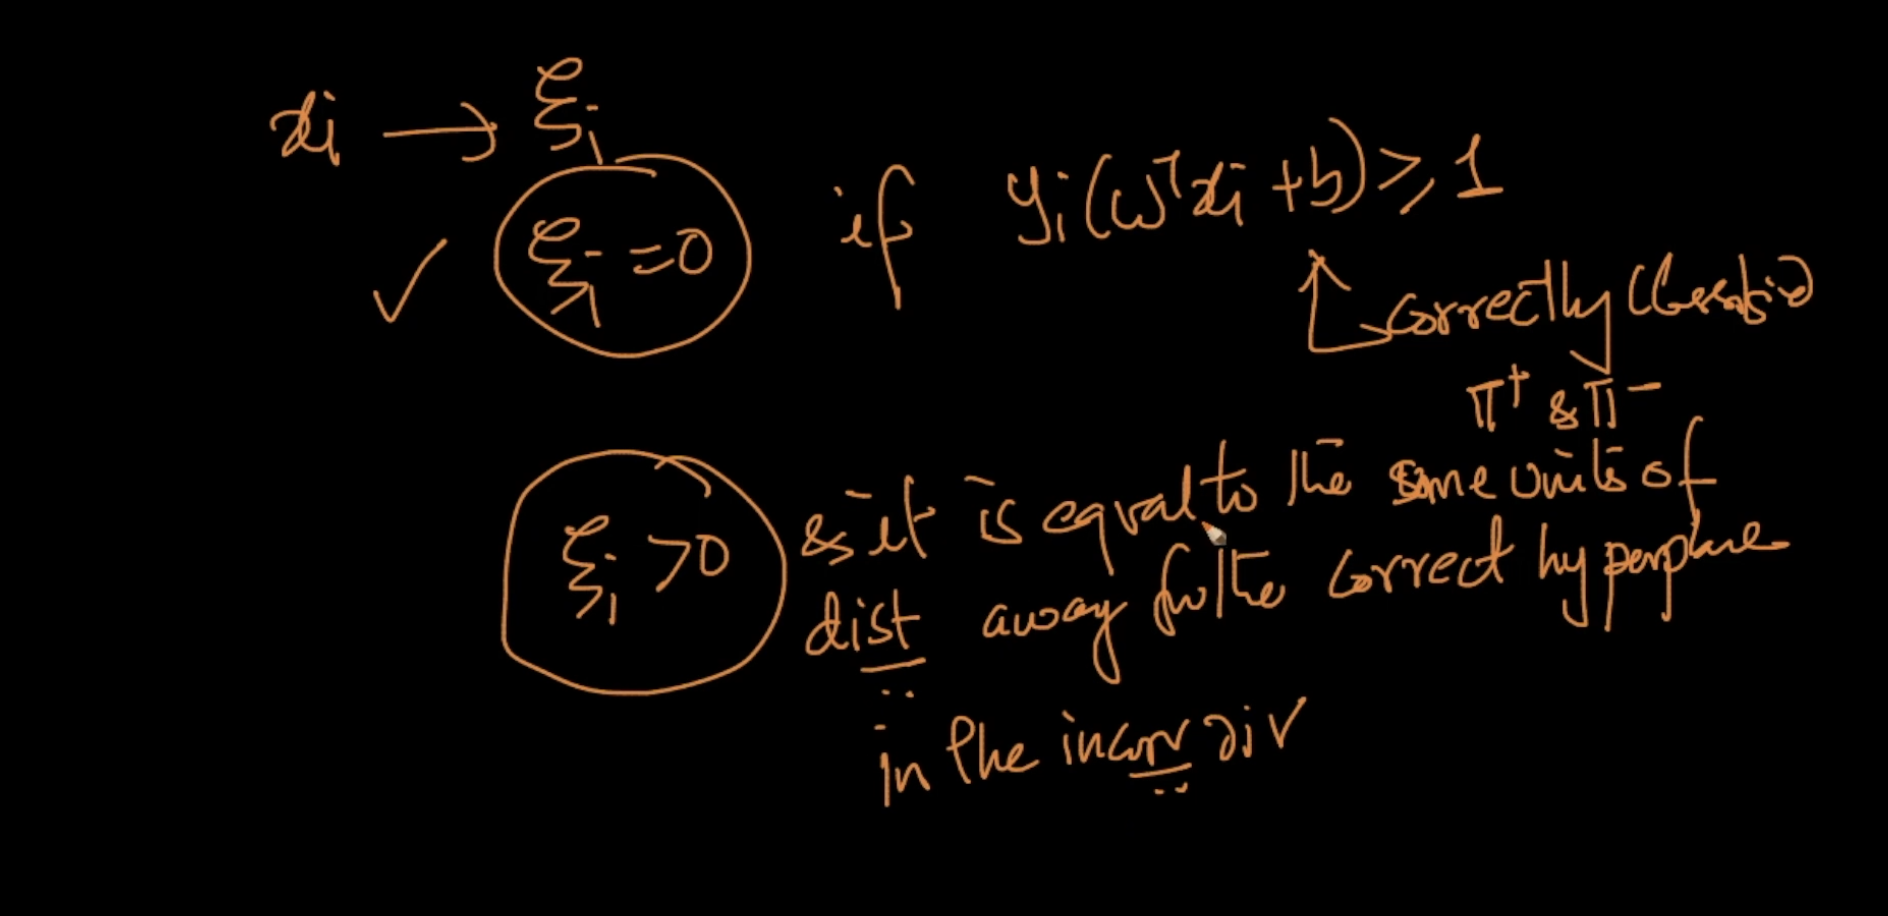 xi → ξi
ξi = 0 if yi(wᵀxi + b) ≥ 1
correctly classified
π⁺ & π⁻
ξi > 0 & it is equal to the some units of
dist away fro the correct hyperplane
in the incorr dir